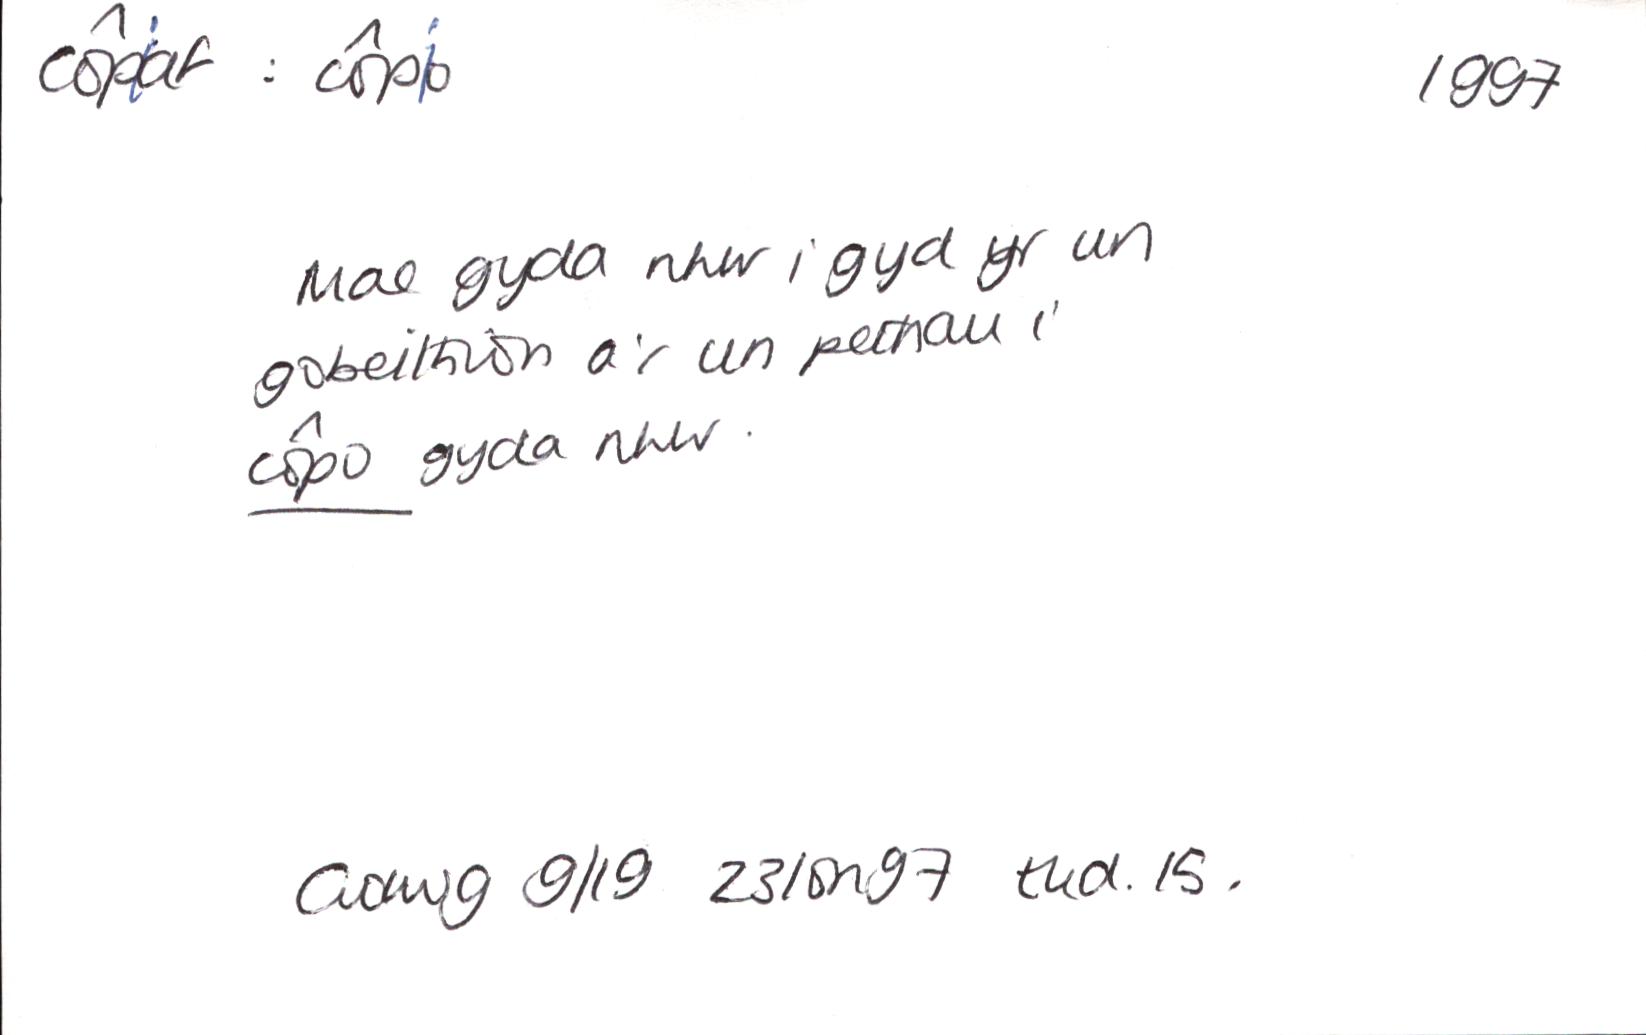 côpiaf : côpio 1997
Mae gyda nhw i gyd yr un
gobeithion a'r un pethau i
côpo gyda nhw.
Golwg 9/19 23/Ion97 tud. 15.